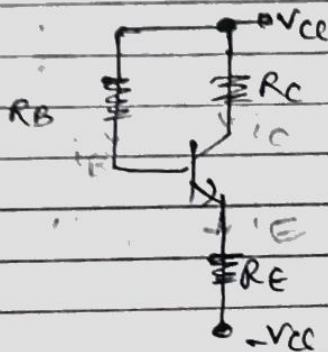 VCC
RB
RC
iC
iB
iE
RE
-VCC